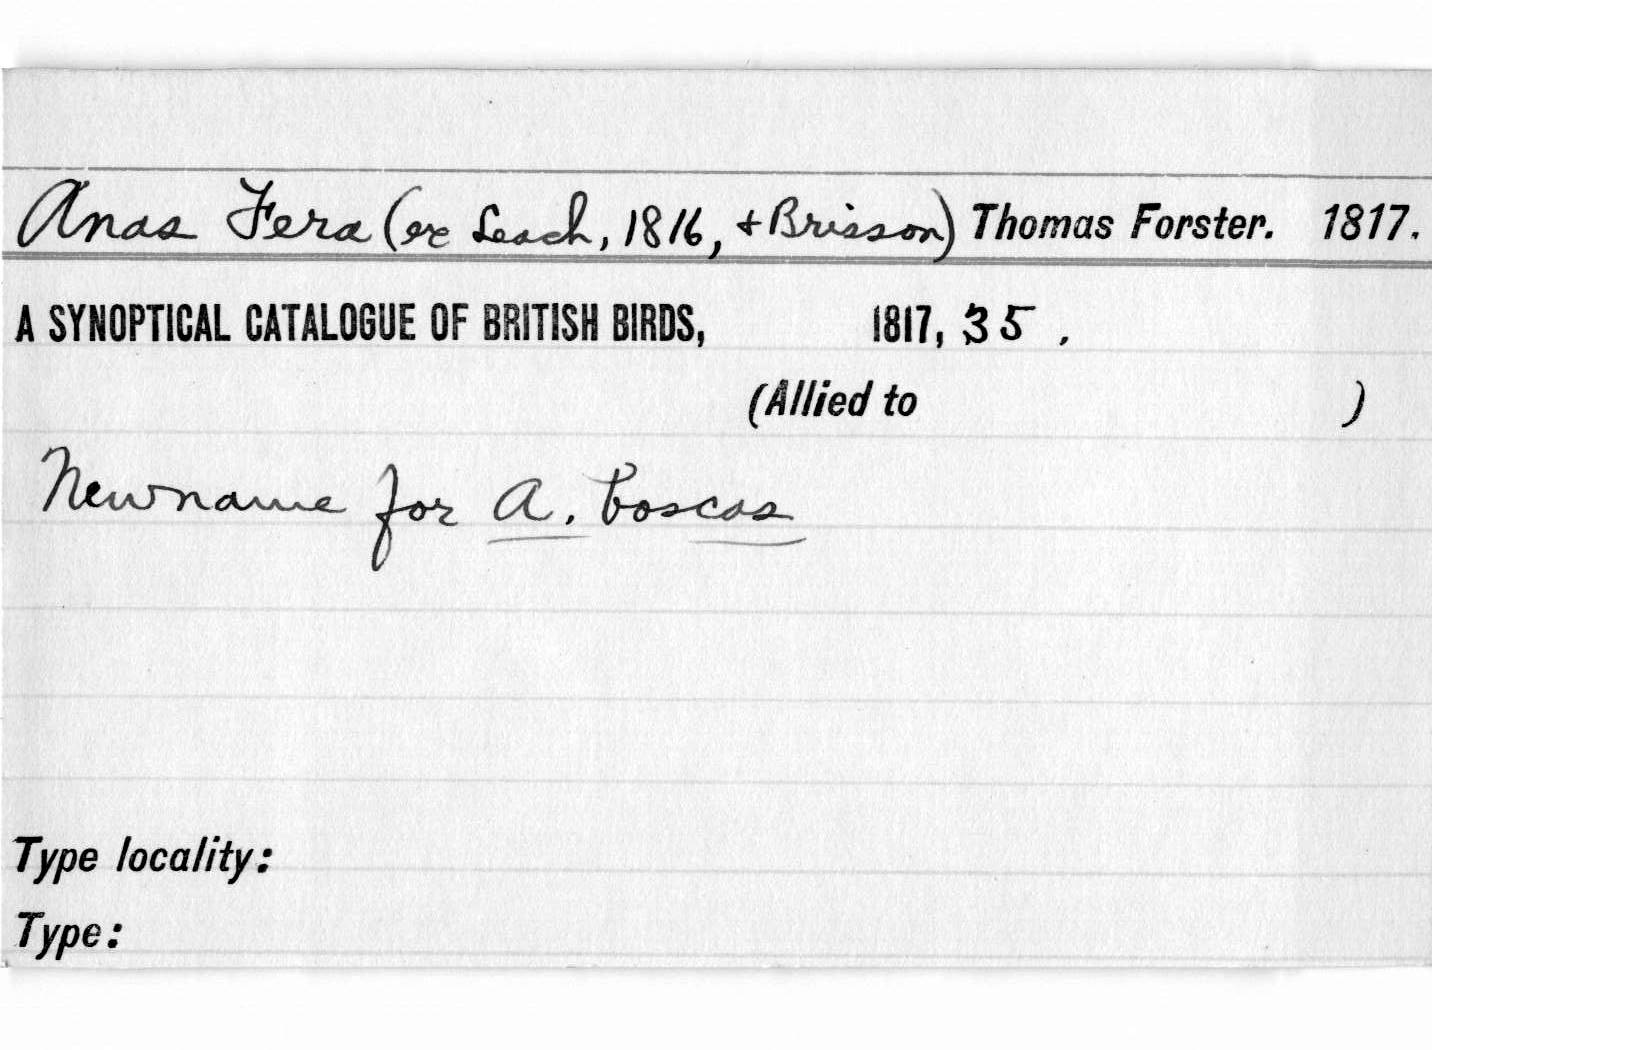 Anas Fera (ex Leach, 1816, + Brisson) Thomas Forster. 1817.
A SYNOPTICAL CATALOGUE OF BRITISH BIRDS, 1817, 35.
(Allied to )
New name for A. boscas
Type locality:
Type: